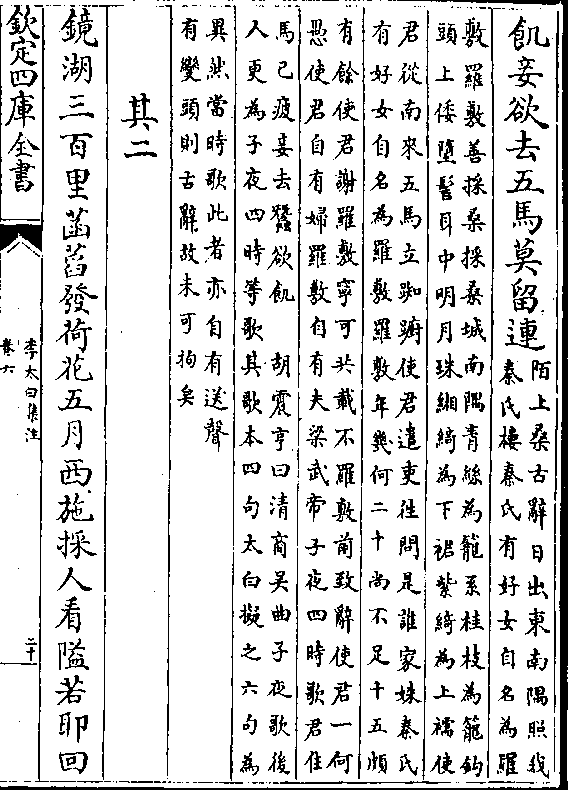 飢妾欲去五馬莫留連
陌上桑古辭日出東南隅照我
秦氏樓秦氏有好女自名為羅
敷羅敷善採桑採桑城南隅青絲為籠系桂枝為籠鈎
頭上倭墮髻耳中明月珠緗綺為下裙紫綺為上襦使
君從南來五馬立踟蹰使君遣吏徃問是誰家姝秦氏
有好女自名為羅敷羅敷年幾何二十尚不足十五頗
有餘使君謝羅敷寧可共載不羅敷前致辭使君一何
愚使君自有婦羅敷自有夫梁武帝子夜四時歌君住
馬已疲妾去蠶欲飢 胡震亨曰清商吴曲子夜歌後
人更為子夜四時等歌其歌本四句太白擬之六句為
異然當時歌此者亦自有送聲
有變頭則古辭故未可拘矣
其二
鏡湖三百里菡萏發荷花五月西施採人看隘若耶回
欽定四庫全書
李太白集注
卷六
二十